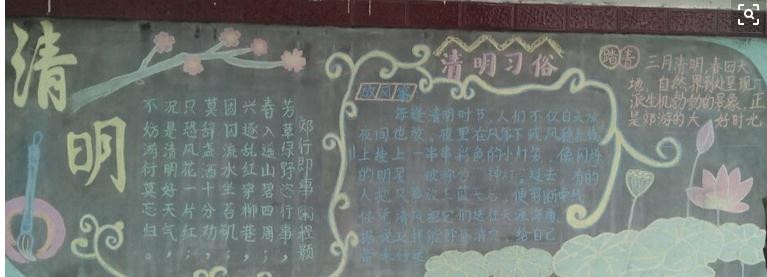 清明
郊行即事 宋 程颢
芳草绿野恣行事，
春入遥山碧四周；
兴逐乱红穿柳巷，
困临流水坐苔矶；
莫辞盏酒十分劝，
只恐风花一片红；
况是清明好天气，
不妨游衍莫忘归。
清明习俗
放风筝
每逢清明时节，人们不仅白天放，
夜间也放。夜里在风筝下或风稳拉线
上挂上一串串彩色的小灯笼，像闪烁
的明星，被称为“神灯”。过去，有的
人把风筝放上蓝天后，便剪断牵线，
任凭清风把它们送往天涯海角，
据说这样能除病消灾，给自己
带来好运。
踏青
三月清明，春回大
地，自然界到处呈现一
派生机勃勃的景象，正
是郊游的大好时光